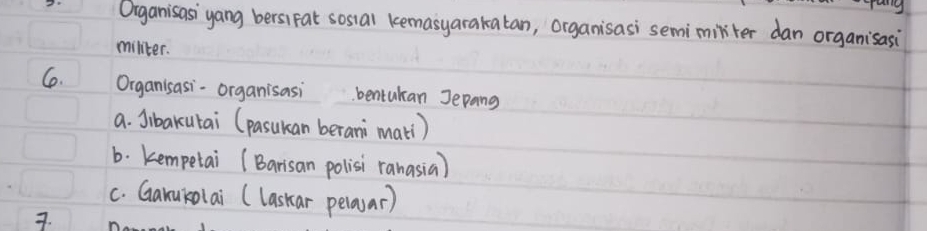 Organisasi yang bersifat sosial kemasyarakatan, organisasi semi militer dan organisasi
militer.
6. Organisasi - organisasi bentukan Jepang
a. Jibakutai (pasukan berani mati)
b. Kempetai (Barisan polisi rahasia)
c. Gakukotai (laskar pelajar)
7.